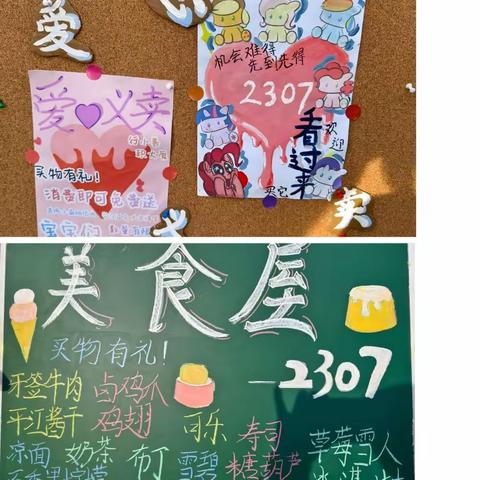 爱
机会难得
先到先得
2307
看过来
欢迎
买它
爱心义卖
行小善
积大爱
买物有礼！
消费即可免费送
宝宝们
卖
美食屋
买物有礼！
—2307
牙签牛肉 卤鸡爪
平江酱干 鸡翅
可乐 寿司 草莓雪人
凉面 奶茶 布丁 雪碧 糖葫芦